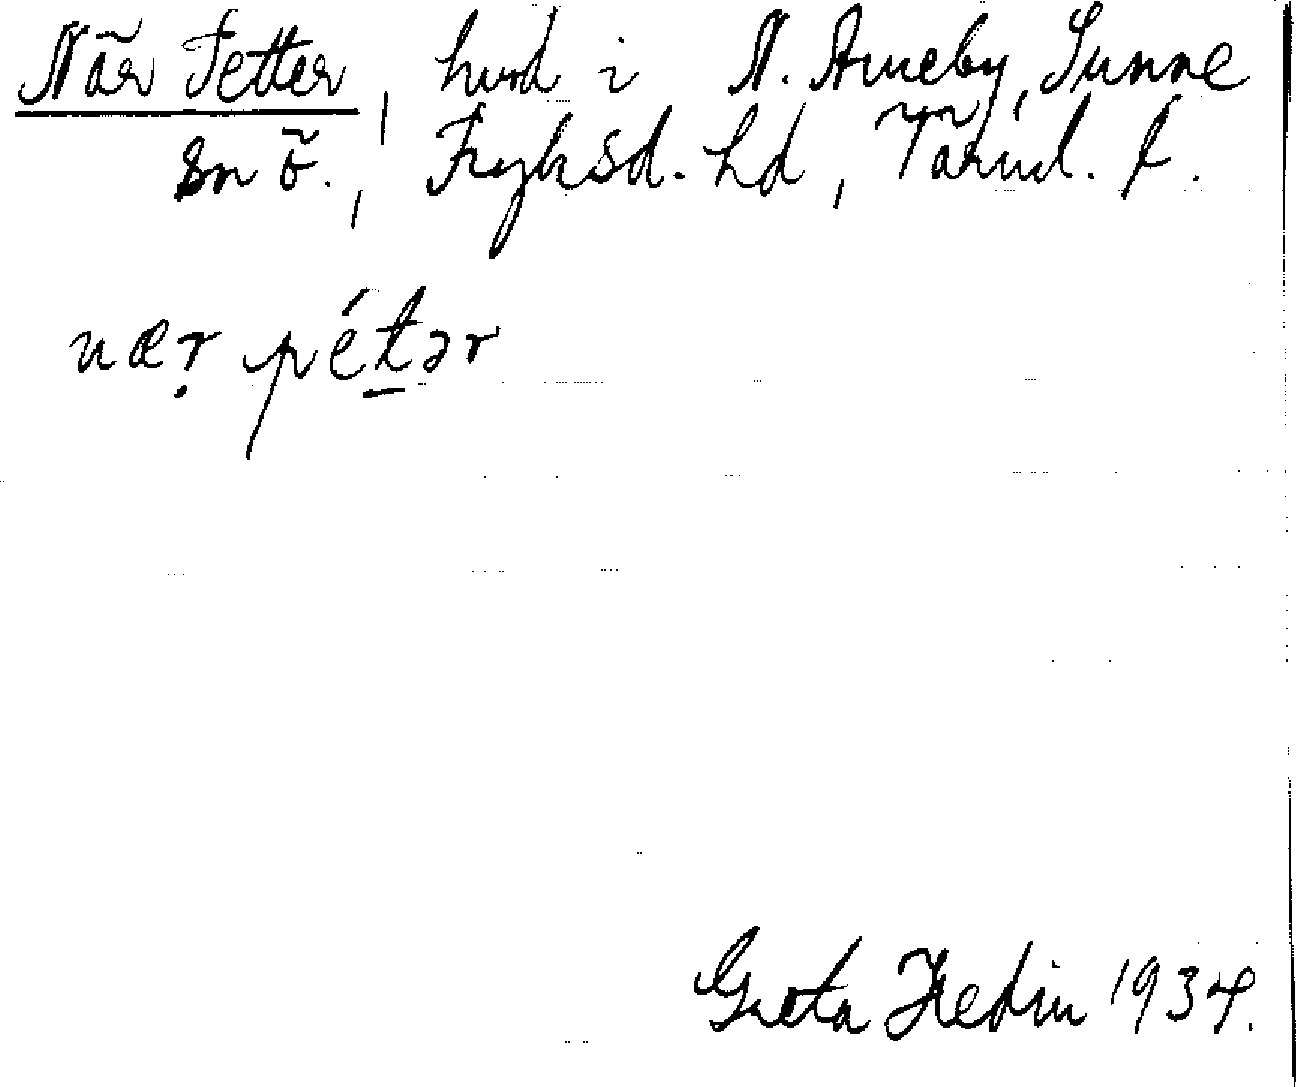 När Petter, hmd i N. Ameby, Sunne
sn ö., Fryksd. hd, Värml. l.
næṛ pét̲ər
Greta Hedin 1934.